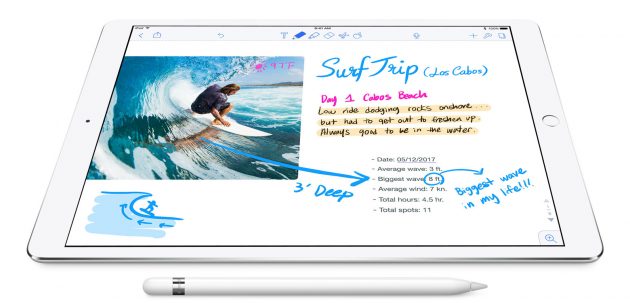 iPad
9:41 AM
97F
Surf Trip (Los Cabos)
Day 1 Cabos Beach
Low ride dodging rocks onshore...
but had to get out to freshen up.
Always good to be in the water.
- Date: 05/12/2017
- Average wave: 3 ft.
- Biggest wave: 8 ft.
- Average wind: 7 kn.
- Total hours: 4.5 hr.
- Total spots: 11
3' Deep
Biggest wave
in my life!!!